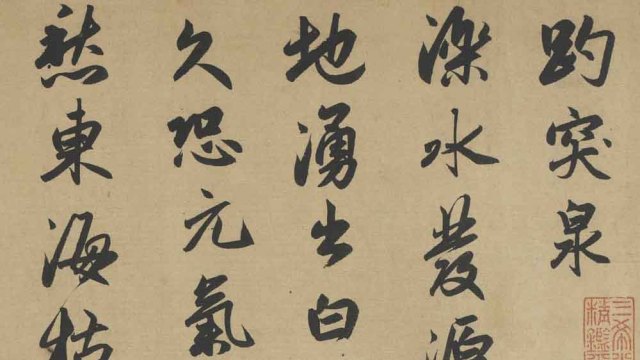 趵突泉
濼水發源
地湧出白
久恐元氣
愁東海枯